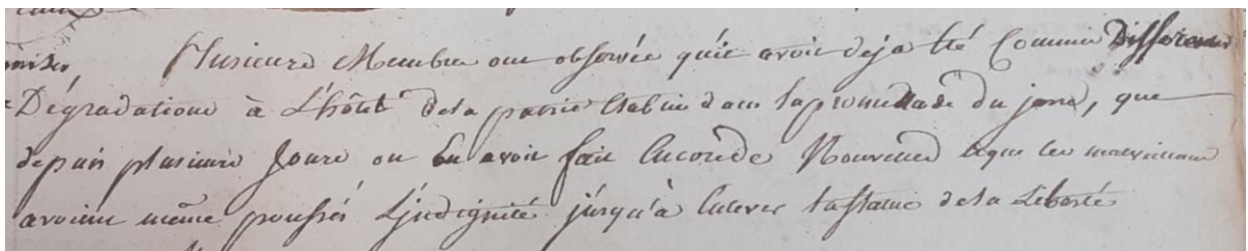 Plusieurs Membres ont observés qu'il avoit deja été Commis Differentes
Dégradations à L'hôtel de la patrie Etablie dans la promenade du jard, que
depuis plusieurs Jours on En avoit fait Encore de Nouvelles & que les malveillans
avoient même poussés L'indignité jusqu'à Enlever la statue de la Liberté